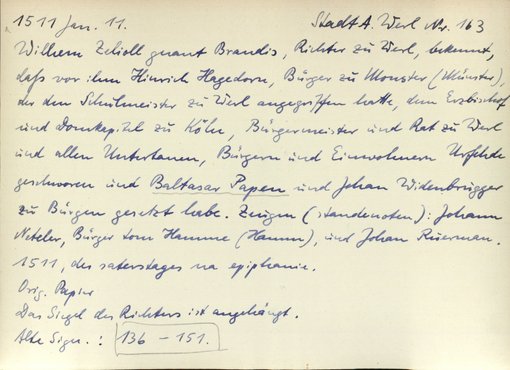 1511 Jan. 11. Stadt A. Werl Nr. 163
Wilhelm Zelioll gnant Brandis, Richter zu Werl, bekennt,
daß vor ihm Hinrich Hagedorn, Bürger zu Monster (Münster),
der den Schulmeister zu Werl angegriffen hatte, dem Erzbischof
und Domkapitel zu Köln, Bürgermeister und Rat zu Werl
und allen Untertanen, Bürgern und Einwohnern Urfehde
geschworen und Baltasar Papen und Johan Widenbrugger
zu Bürgen gesetzt habe. Zeugen (standenoten): Johann
Neteler, Bürger tom Hamme (Hamm), und Johan Ruerman.
1511, des saterstages na epiphanie.
Orig. Papier
Das Siegel des Richters ist angehängt.
Alte Sign.: 136 - 151.